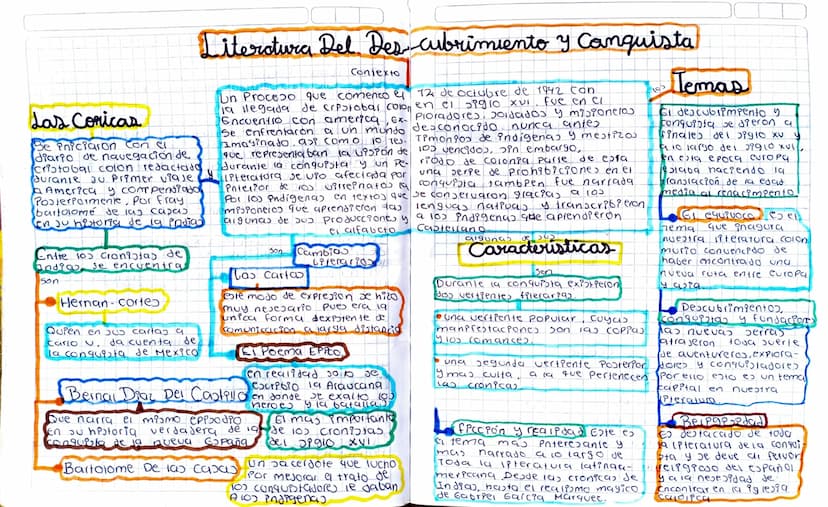 Literatura Del Descubrimiento y Conquista
Contexto
Un Proceso que comenzó el
la llegada de cristobal colon
Encuentro con america, ex-
Se enfrentaron a un mundo
imaginado. así como lo
que representaban la vision de
durante la conquista y un pe-
literatura se vio afectada por
interior de los virreinatos la
Por los indigenas en textos que
misioneros que aprendieron las
algunas de sus producciones y
el alfabeto
12 de octubre de 1942 con
en el siglo XVI. fue en el
ploradores, soldados y misioneros
desconocido nunca antes
Timonios de indigenas y mestizos
los vencidos, sin embargo,
riodo de colonia parte de esta
una serie de prohibiciones en el
conquista tambien fue narrada
se conservaron gracias a los
lenguas nativas y transcribieron
a los indigenas que aprendieron
Castellano
Las Cronicas
Se iniciaron con el
diario de navegación de
cristobal colon redactado
durante su Primer viaje
a America y compendiado
Posteriormente, Por Fray
bartolomé de las casas
en su historia de la indias
y
Entre los cronistas de
Indias se encuentra
son
Hernan-cortes
Quien en sus cartas a
carlo V, da cuenta de
la conquista de Mexico
Bernal Diaz Del Castillo
Que narra el mismo episodio
en su historia verdadera de la
conquista de la nueva España
El mas importante
de los cronistas
del siglo XVI
Bartolome De las Casas
Un sacerdote que lucho
Por mejorar el trato de
los conquistadores le daban
A los indigenas
son
Cambios
literarios
Las Cartas
Este modo de expresion se hizo
muy necesario pues era la
unica forma de
comunicación a larga distancia
El Poema Epico
en realidad solo se
escribio la Araucana
en donde se exalto los
heroes y la batallas
algunas de sus
Caracteristicas
son
Durante la conquista existieron
dos vertientes literarias
una vertiente popular, cuyas
manifestaciones son las coplas
y los romances.
una segunda vertiente posterior
y mas culta, a la que pertenecen
las cronicas.
los
Temas
El descubrimiento y
conquista se dieron a
finales del siglo XV y
a lo largo del siglo XVI,
en esta epoca europa
estaba haciendo la
transicion de la edad
media al renacimiento
El equivoco es el
tema que inagura
nuestra literatura colon
murio convencido de
haber encontrado una
nueva ruta entre europa
y asia.
Descubrimientos,
conquistas y Fundacion
las nuevas tierras
atrajeron toda suerte
de aventureros, explora-
dores y conquistadores
Por ello esto es un tema
capital en nuestra
literatura.
Religiosidad
Es destacado de toda
la literatura de la conqui-
sta y se debe al fervor
religioso del español
y a la necesidad de
encontrar en la iglesia
catolica
Ficción y realidad Este es
el tema mas interesante y
mas narrado a lo largo de
toda la literatura latinoa-
mericana Desde las cronicas de
Indias, hasta el realismo magico
de Gabriel Garcia Marquez.